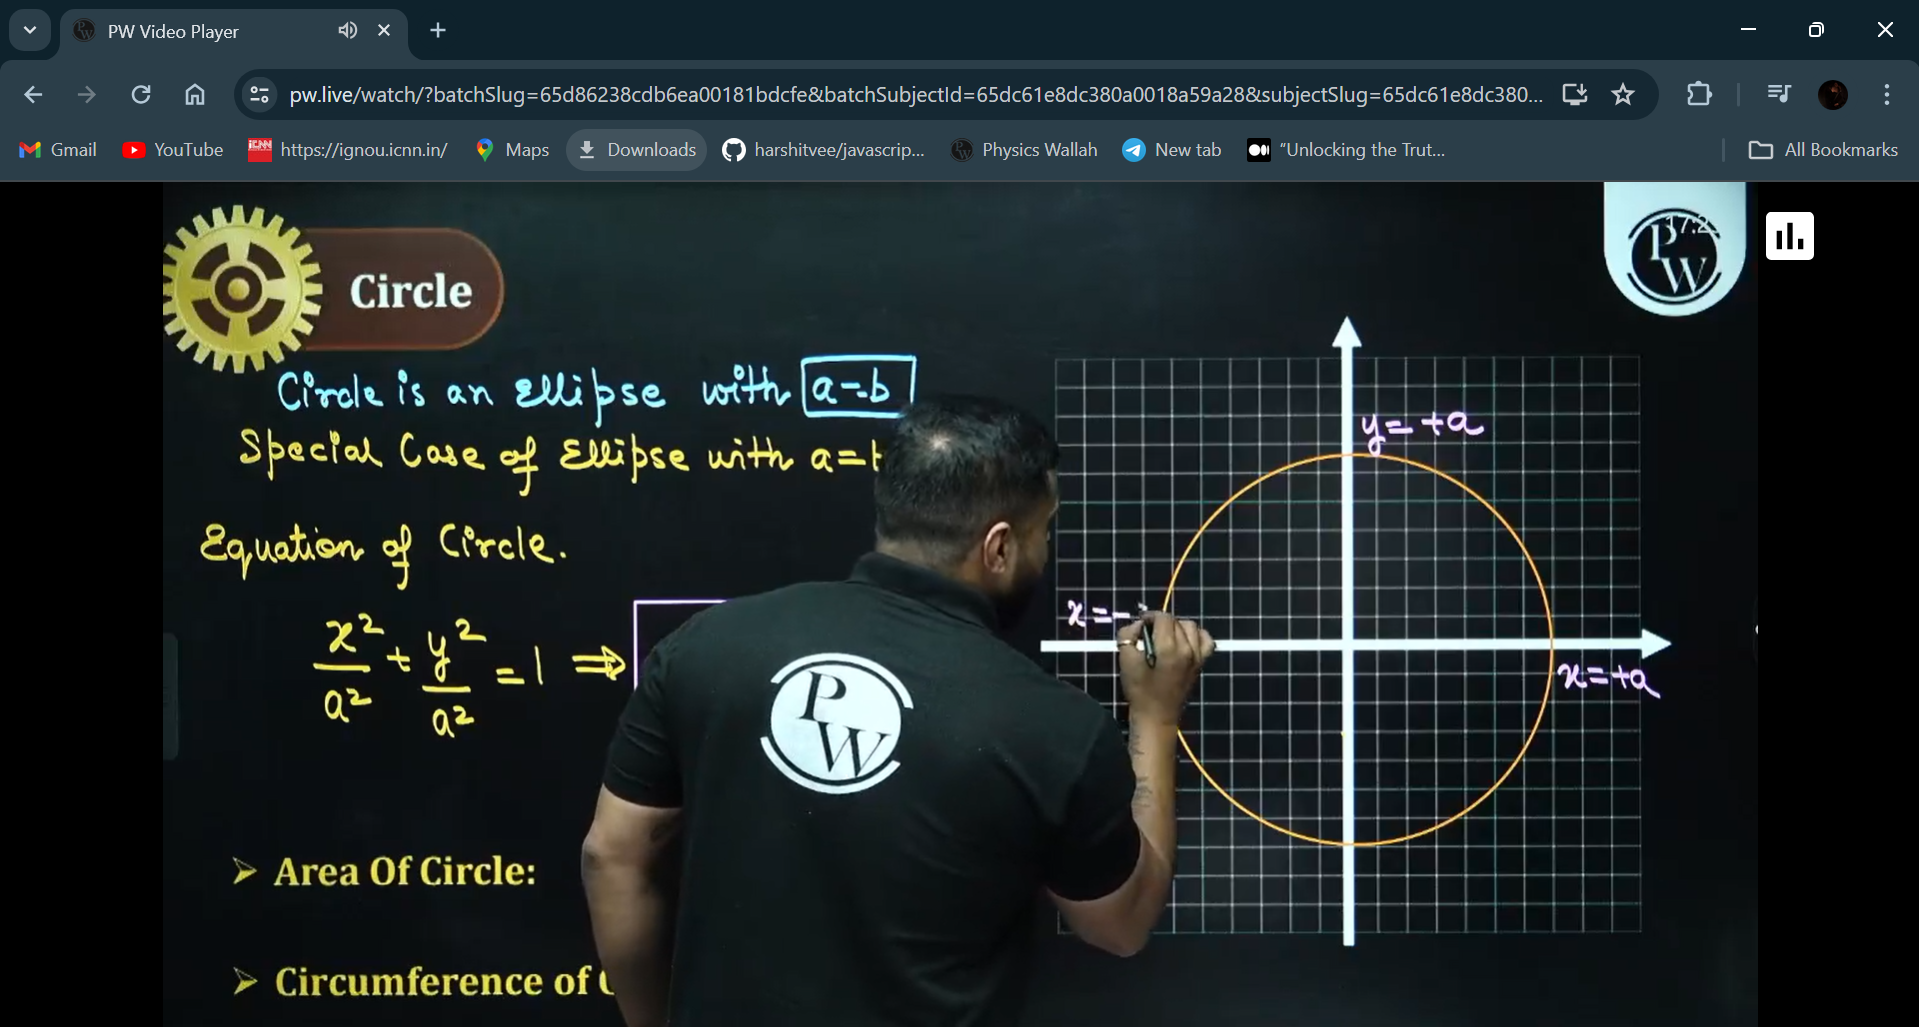 PW Video Player
pw.live/watch/?batchSlug=65d86238cdb6ea00181bdcfe&batchSubjectId=65dc61e8dc380a0018a59a28&subjectSlug=65dc61e8dc380...
Gmail
YouTube
https://ignou.icnn.in/
Maps
Downloads
harshitvee/javascrip...
Physics Wallah
New tab
“Unlocking the Trut...
All Bookmarks
Circle
PW
Circle is an Ellipse with a=b
Special Case of Ellipse with a=
y=+a
Equation of Circle.
x=-
x²/a² + y²/a² = 1 ⇒
x=+a
PW
➢ Area Of Circle:
➢ Circumference of